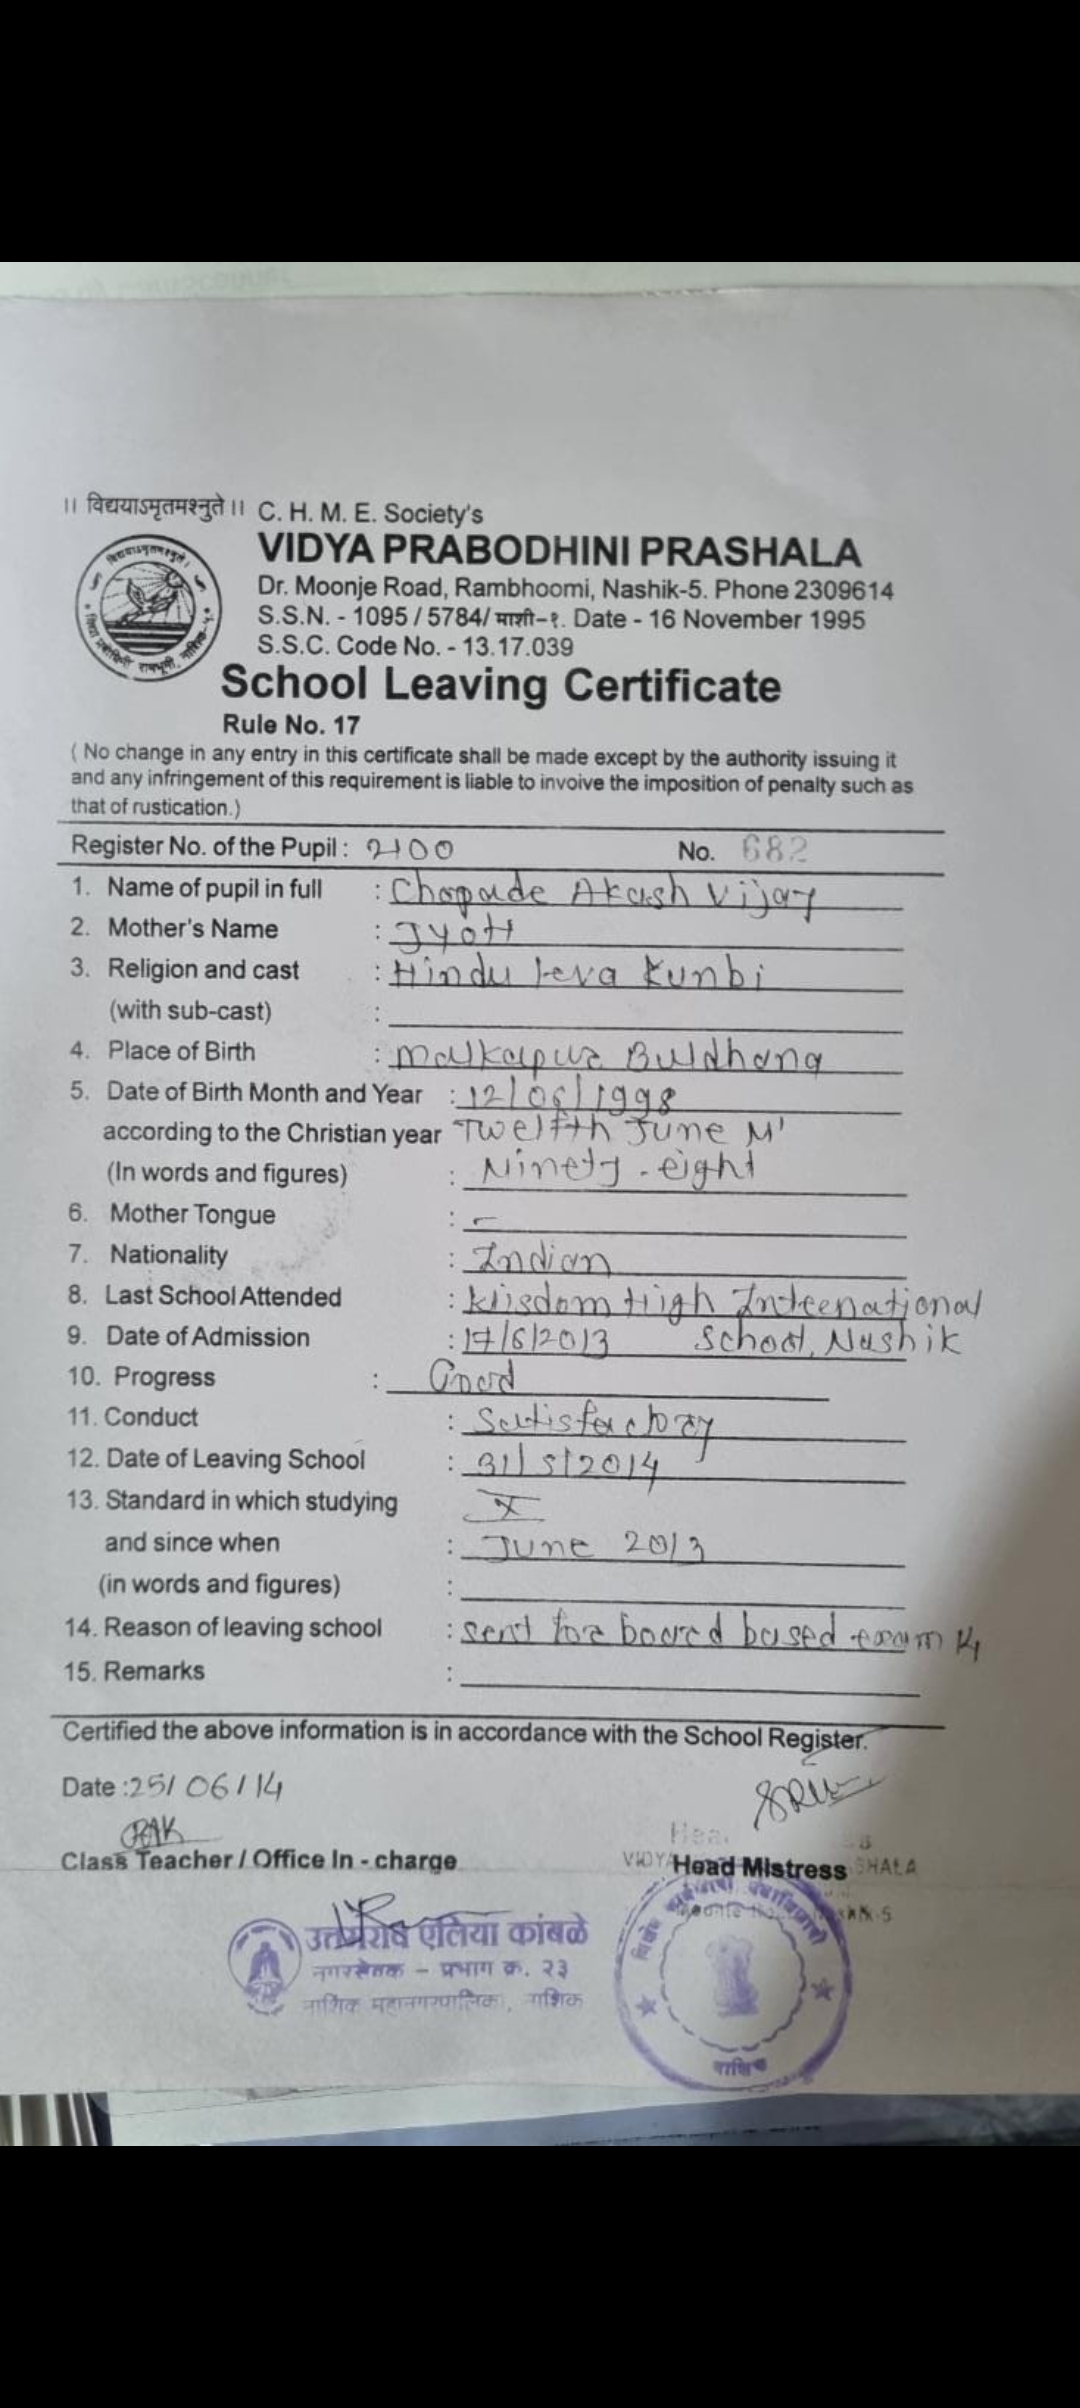 ।। विद्ययाऽमृतमश्नुते ।। C. H. M. E. Society's
VIDYA PRABODHINI PRASHALA
Dr. Moonje Road, Rambhoomi, Nashik-5. Phone 2309614
S.S.N. - 1095 / 5784/ माशी-१. Date - 16 November 1995
S.S.C. Code No. - 13.17.039
School Leaving Certificate
Rule No. 17
( No change in any entry in this certificate shall be made except by the authority issuing it
and any infringement of this requirement is liable to invoive the imposition of penalty such as
that of rustication.)
Register No. of the Pupil : 2100 No. 682
1. Name of pupil in full : Chopade Akash Vijay
2. Mother's Name : Jyoti
3. Religion and cast : Hindu leva Kunbi
(with sub-cast) :
4. Place of Birth : Malkapur Buldhana
5. Date of Birth Month and Year : 12/06/1998
according to the Christian year Twelfth June M'
(In words and figures) : Ninety-eight
6. Mother Tongue : -
7. Nationality : Indian
8. Last School Attended : Wisdom High International
9. Date of Admission : 17/6/2013 School, Nashik
10. Progress : Good
11. Conduct : Satisfactory
12. Date of Leaving School : 31/5/2014
13. Standard in which studying X
and since when : June 2013
(in words and figures) :
14. Reason of leaving school : sent for board based exam 14
15. Remarks :
Certified the above information is in accordance with the School Register.
Date :25/06/14
Class Teacher / Office In - charge Head Mistress
उत्तमराव एलिया कांबळे
नगरसेवक - प्रभाग क्र. २३
नाशिक महानगरपालिका, नाशिक
विशेष कार्यकारी दंडाधिकारी
नाशिक